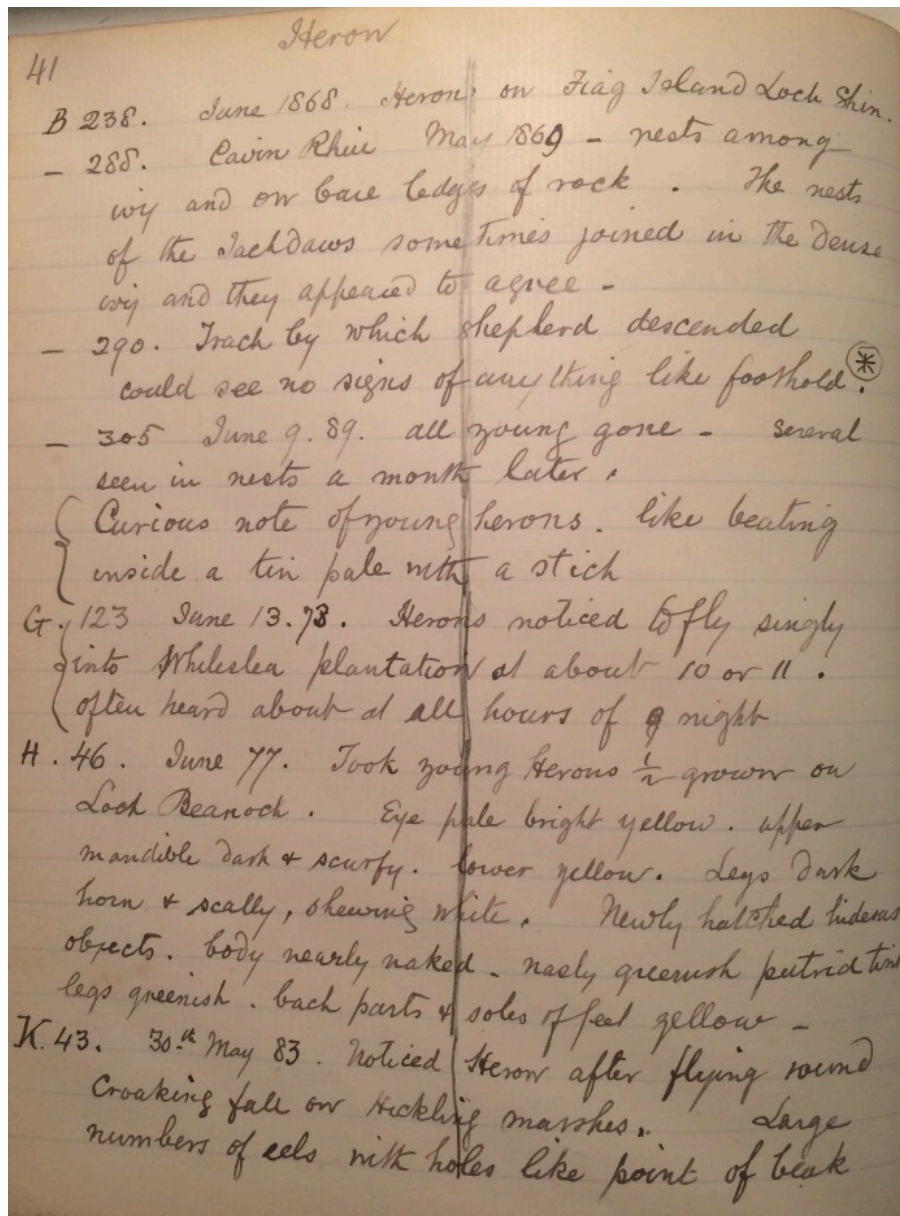 Heron
41
B 238. June 1868. Herons on Fiag Island Loch Shin.
— 288. Cavin Rhui May 1869 – nests among
ivy and on bare ledges of rock . The nests
of the Jackdaws sometimes joined in the dense
ivy and they appeared to agree –
— 290. Track by which shepherd descended
could see no signs of anything like foothold. *
— 305 June 9. 89. all young gone – several
seen in nests a month later .
Curious note of young herons. like beating
inside a tin pale with a stick
G. 123 June 13. 73. Herons noticed to fly singly
into plantation at about 10 or 11 .
often heard about at all hours of night
H. 46. June 77. Took young Herons ½ grown on
Loch Beanoch . Eye pale bright yellow. upper
mandible dark & scurfy. lower yellow. Legs dark
horn & scally, shewing white. Newly hatched hideous
objects. body nearly naked – nasty greenish putrid tint
legs greenish . back parts & soles of feet yellow –
K. 43. 30th May 83. Noticed Heron after flying round
Croaking fall on Hickling marshes. Large
numbers of eels with holes like point of beak